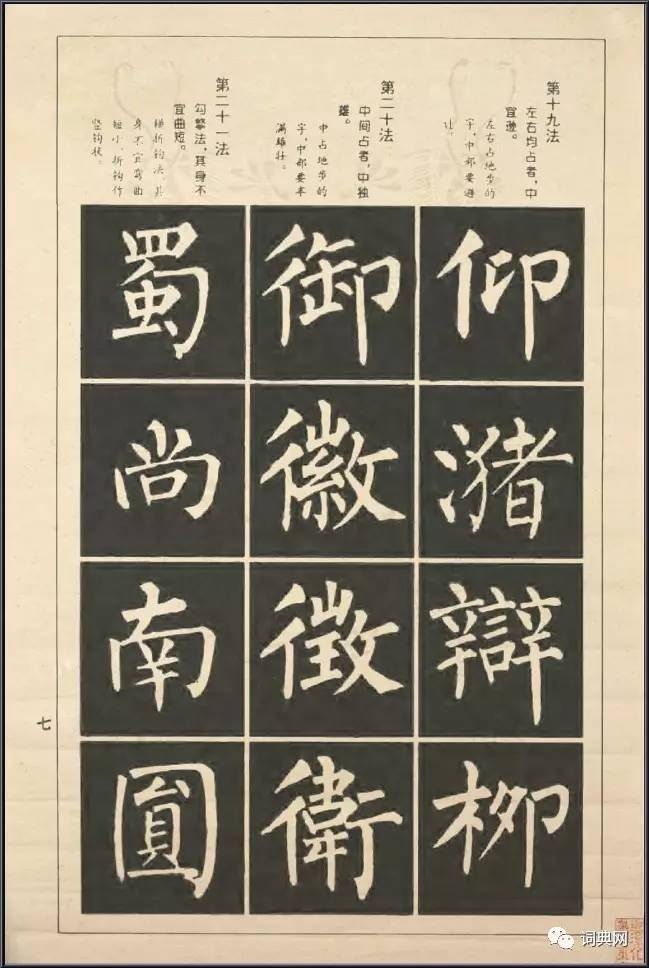 第十九法
左右均占者,中
宜逊。
左右占地步的
字,中部要避
让。
仰
潴
辯
柳
第二十法
中间占者,中独
雄。
中占地步的
字,中部要丰
满雄壮。
御
徽
徵
衛
第二十一法
勾拏法,其身不
宜曲短。
横折钩法其
身不宜弯曲
短小,折钩作
竖钩状。
蜀
尚
南
圓
七
词典网